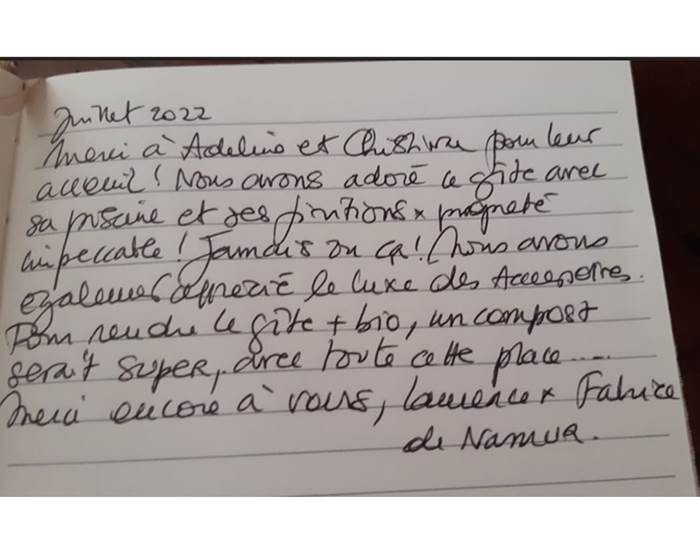 Juillet 2022
Merci à Adeline et Christine pour leur
accueil! Nous avons adoré ce gîte avec
sa piscine et ses finitions x propreté
impeccable! Jamais vu ça! Nous avons
egalement apprécié le luxe des Accessoires.
Pour rendre le gîte + bio, un compost
serait super, avec toute cette place....
Merci encore à vous, Laurence x Fabrice
de Namur.